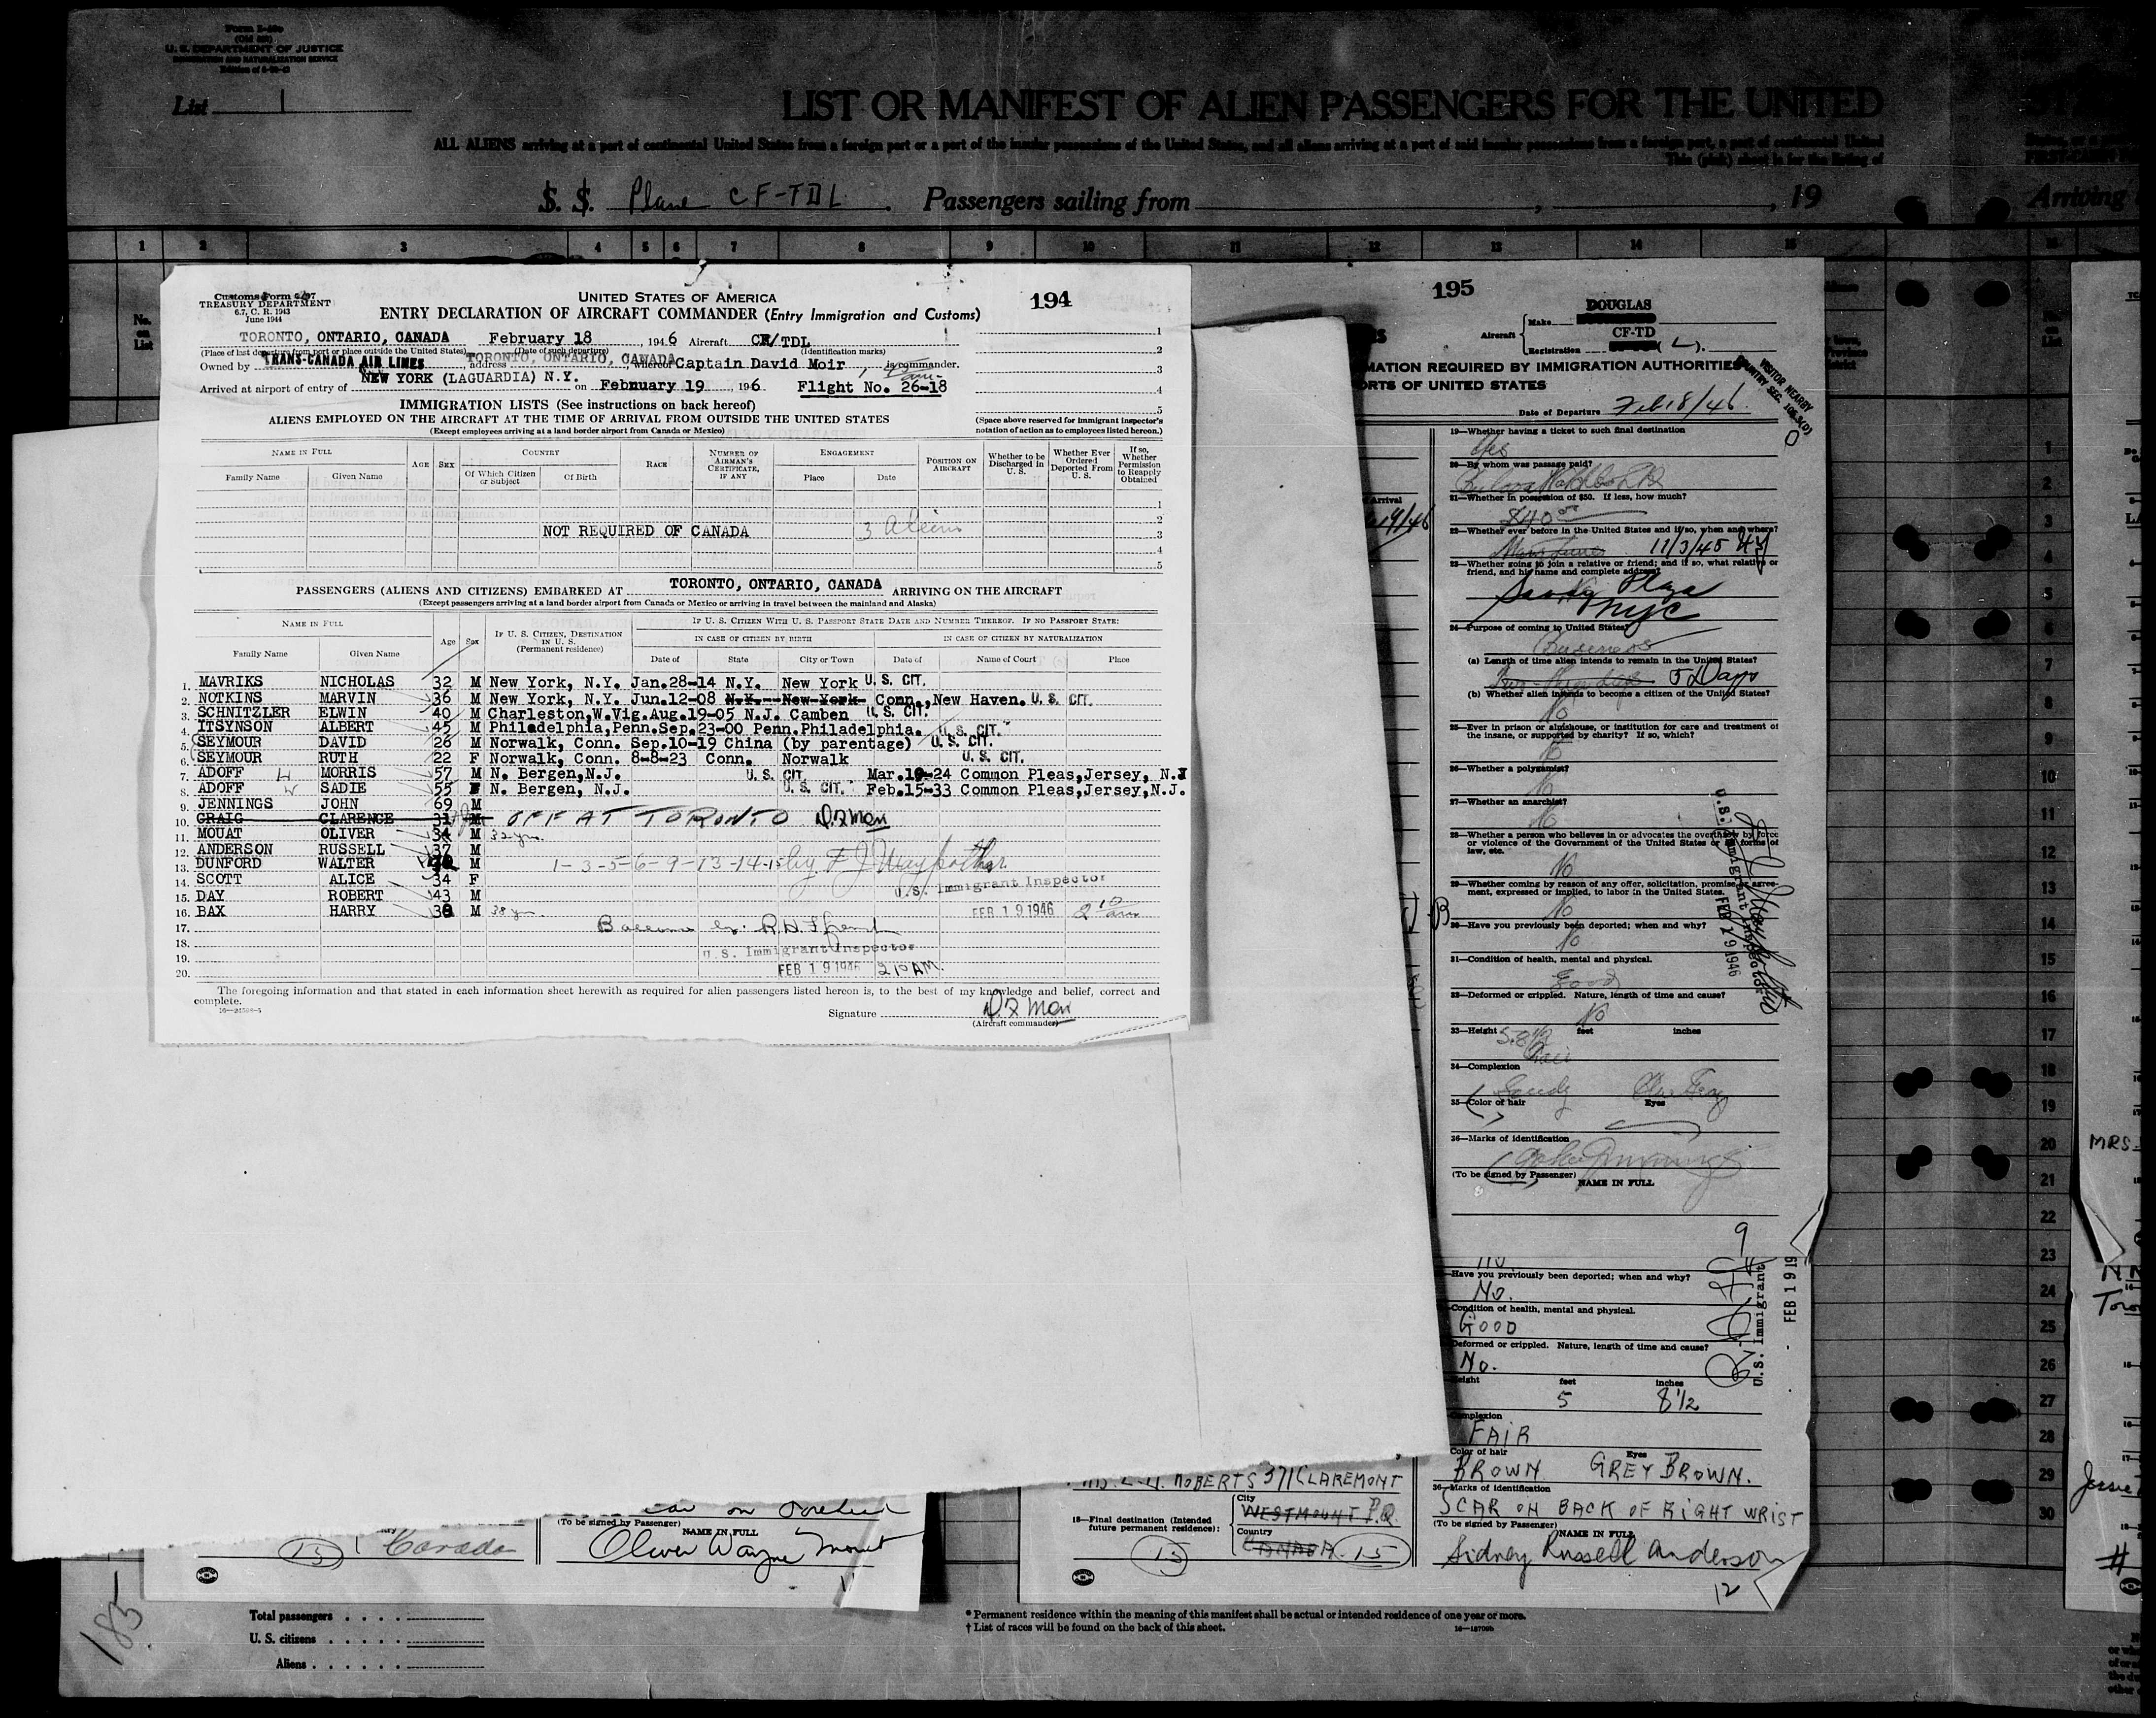 Form I-
(Old )
U. S. DEPARTMENT OF JUSTICE
IMMIGRATION AND NATURALIZATION SERVICE
List 1
LIST OR MANIFEST OF ALIEN PASSENGERS FOR THE UNITED
ALL ALIENS arriving at a port of continental United States from a foreign port or a port of the insular possessions of the United States, and all aliens arriving at a port of said insular possessions from a foreign port, a port of continental United
This (pink) sheet is for the listing of
S. S. Plane CF-TDL Passengers sailing from , , 19
Arriving
1 2 3 4 5 6 7 8 9 10 11 12 13 14 15 16
No. on List
Customs Form
TREASURY DEPARTMENT
6.7, C. R. 1943
June 1944
UNITED STATES OF AMERICA
194
ENTRY DECLARATION OF AIRCRAFT COMMANDER (Entry Immigration and Customs)
TORONTO, ONTARIO, CANADA February 18, 1946 Aircraft CF/TDL
(Place of last departure from port or place outside the United States) (Date of such departure) (Identification marks)
Owned by TRANS-CANADA AIR LINES, address TORONTO, ONTARIO, CANADA whereof Captain David Moir, is commander.
Arrived at airport of entry of NEW YORK (LAGUARDIA) N.Y. on February 19 1946. Flight No. 26-18
IMMIGRATION LISTS (See instructions on back hereof)
ALIENS EMPLOYED ON THE AIRCRAFT AT THE TIME OF ARRIVAL FROM OUTSIDE THE UNITED STATES
(Except employees arriving at a land border airport from Canada or Mexico)
(Space above reserved for Immigrant Inspector's notation of action as to employees listed hereon.)
NAME IN FULL AGE SEX COUNTRY RACE NUMBER OF AIRMAN'S CERTIFICATE, IF ANY ENGAGEMENT POSITION ON AIRCRAFT Whether to be Discharged in U. S. Whether Ever Ordered Deported From U. S. If so, Whether Permission to Reapply Obtained
Family Name Given Name Of Which Citizen or Subject Of Birth Place Date
NOT REQUIRED OF CANADA 3 Aliens
PASSENGERS (ALIENS AND CITIZENS) EMBARKED AT TORONTO, ONTARIO, CANADA ARRIVING ON THE AIRCRAFT
(Except passengers arriving at a land border airport from Canada or Mexico or arriving in travel between the mainland and Alaska)
NAME IN FULL Age Sex IF U. S. CITIZEN, DESTINATION IN U. S. (Permanent residence) IF U. S. CITIZEN WITH U. S. PASSPORT STATE DATE AND NUMBER THEREOF. IF NO PASSPORT STATE:
IN CASE OF CITIZEN BY BIRTH IN CASE OF CITIZEN BY NATURALIZATION
Family Name Given Name Date of State City or Town Date of Name of Court Place
1. MAVRIKS NICHOLAS 32 M New York, N.Y. Jan.28-14 N.Y. New York U. S. CIT.
2. NOTKINS MARVIN 36 M New York, N.Y. Jun.12-08 N.Y. New York Conn., New Haven. U. S. CIT.
3. SCHNITZLER ELWIN 40 M Charleston,W.Vig.Aug.19-05 N.J. Camben U. S. CIT.
4. ITSYNSON ALBERT 45 M Philadelphia,Penn.Sep.23-00 Penn.Philadelphia. U. S. CIT.
5. SEYMOUR DAVID 26 M Norwalk, Conn. Sep.10-19 China (by parentage) U. S. CIT.
6. SEYMOUR RUTH 22 F Norwalk, Conn. 8-8-23 Conn. Norwalk U. S. CIT.
7. ADOFF MORRIS 57 M N. Bergen,N.J. U. S. CIT Mar.10-24 Common Pleas,Jersey, N.J
8. ADOFF SADIE 55 F N. Bergen, N.J. U. S. CIT. Feb.15-33 Common Pleas,Jersey,N.J.
9. JENNINGS JOHN 69 M
10. CRAIG CLARENCE 31 M OFF AT TORONTO
11. MOUAT OLIVER 34 M 32 yrs.
12. ANDERSON RUSSELL 37 M
13. DUNFORD WALTER M 1-3-5-6-9-13-14-15 by F J
14. SCOTT ALICE 34 F U.S. Immigrant Inspector
15. DAY ROBERT 43 M
16. BAX HARRY 38 M 38 yrs. FEB 19 1946 2 10 am
17. Balance by: R.D.
18. U.S. Immigrant Inspector
19. FEB 19 1946 210 AM.
20.
The foregoing information and that stated in each information sheet herewith as required for alien passengers listed hereon is, to the best of my knowledge and belief, correct and complete.
Signature
(Aircraft commander)
195
Aircraft Make DOUGLAS
Registration CF-TD (L).
MATION REQUIRED BY IMMIGRATION AUTHORITIES
ORTS OF UNITED STATES
VISITOR NEARBY COUNTRY SEC.
Date of Departure Feb 18/46
Arrival
19—Whether having a ticket to such final destination
Yes
20—By whom was passage paid?
21—Whether in possession of $50. If less, how much?
$40
22—Whether ever before in the United States and if so, when and where?
11/3/45 NY
23—Whether going to join a relative or friend; and if so, what relative or friend, and his name and complete address?
Savoy Plaza
NYC
24—Purpose of coming to United States?
Business
(a) Length of time alien intends to remain in the United States?
5 Days
(b) Whether alien intends to become a citizen of the United States?
No
25—Ever in prison or almshouse, or institution for care and treatment of the insane, or supported by charity? If so, which?
No
26—Whether a polygamist?
No
27—Whether an anarchist?
No
28—Whether a person who believes in or advocates the overthrow by force or violence of the Government of the United States or all forms of law, etc.
No
29—Whether coming by reason of any offer, solicitation, promise or agreement, expressed or implied, to labor in the United States.
No
30—Have you previously been deported; when and why?
No
31—Condition of health, mental and physical.
Good
32—Deformed or crippled. Nature, length of time and cause?
No
33—Height feet inches
5.8 1/2
34—Complexion
Sandy
35—Color of hair Eyes
36—Marks of identification
(To be signed by Passenger) NAME IN FULL
U.S. Immigrant Inspector
FEB 19 1946
9
No
Have you previously been deported; when and why?
No.
Condition of health, mental and physical.
GOOD
Deformed or crippled. Nature, length of time and cause?
No.
Height feet inches
5 8 1/2
Complexion
FAIR
Color of hair Eyes
BROWN GREY BROWN.
36—Marks of identification
SCAR ON BACK OF RIGHT WRIST
(To be signed by Passenger) NAME IN FULL
Sidney Russell Anderson
12
U.S. Immigrant
FEB 19 19
ROBERTS 371 CLAREMONT
18—Final destination (Intended future permanent residence):
City WESTMOUNT P.Q.
Country CANADA 15
15
on forehead
(To be signed by Passenger) NAME IN FULL
Oliver Wayne Mouat
15 Canada
11
185
Total passengers
U. S. citizens
Aliens
* Permanent residence within the meaning of this manifest shall be actual or intended residence of one year or more.
† List of races will be found on the back of this sheet.
1 2 3 4 5 6 7 8 9 10 11 12 13 14 15 16 17 18 19 20 21 22 23 24 25 26 27 28 29 30
MRS
Jessie
#